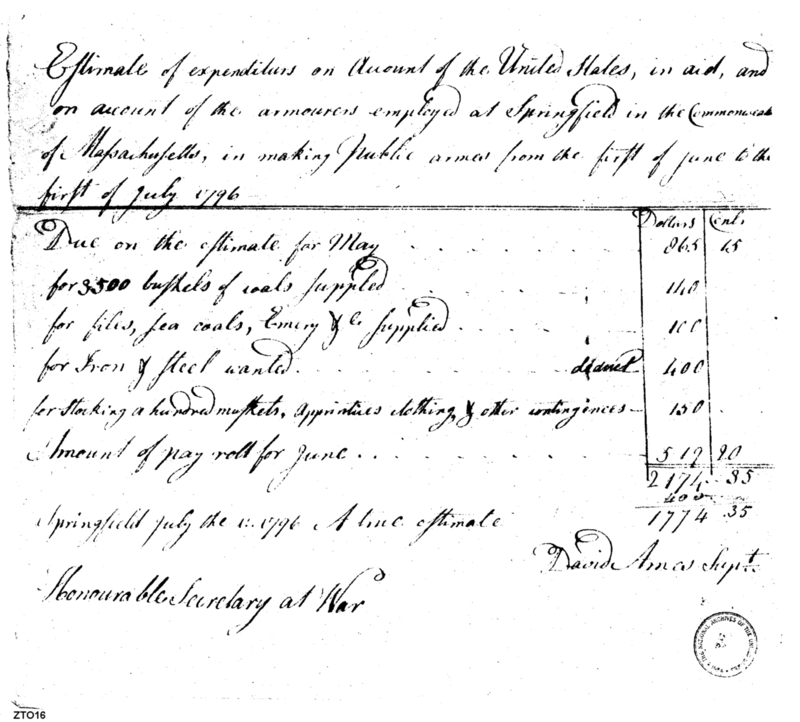 Estimate of expenditurs on Account of the United States, in aid, and
on account of the armourers employed at Springfield in the Commonwealt
of Massachusetts, in making Public armes from the first of june to the
first of July 1796
Dollars Cents
Due on the estimate for May . . . . . . 865 15
for 3500 bushels of coals suppled . . . . . 140
for files, sea coals, Emery & c supplied . . . . . 100
for Iron & Steel wanted . . . . . deduct 400
for Stocking a hundred muskets, apprintices clothing, & other contingences 150
Amount of pay roll for June . . . . . . 519 20
2174 35
400
1774 35
Springfield july the 1796 A true estimate
David Ames Supt.
Honourable Secretary at War
THE NATIONAL ARCHIVES OF THE
ZTO16